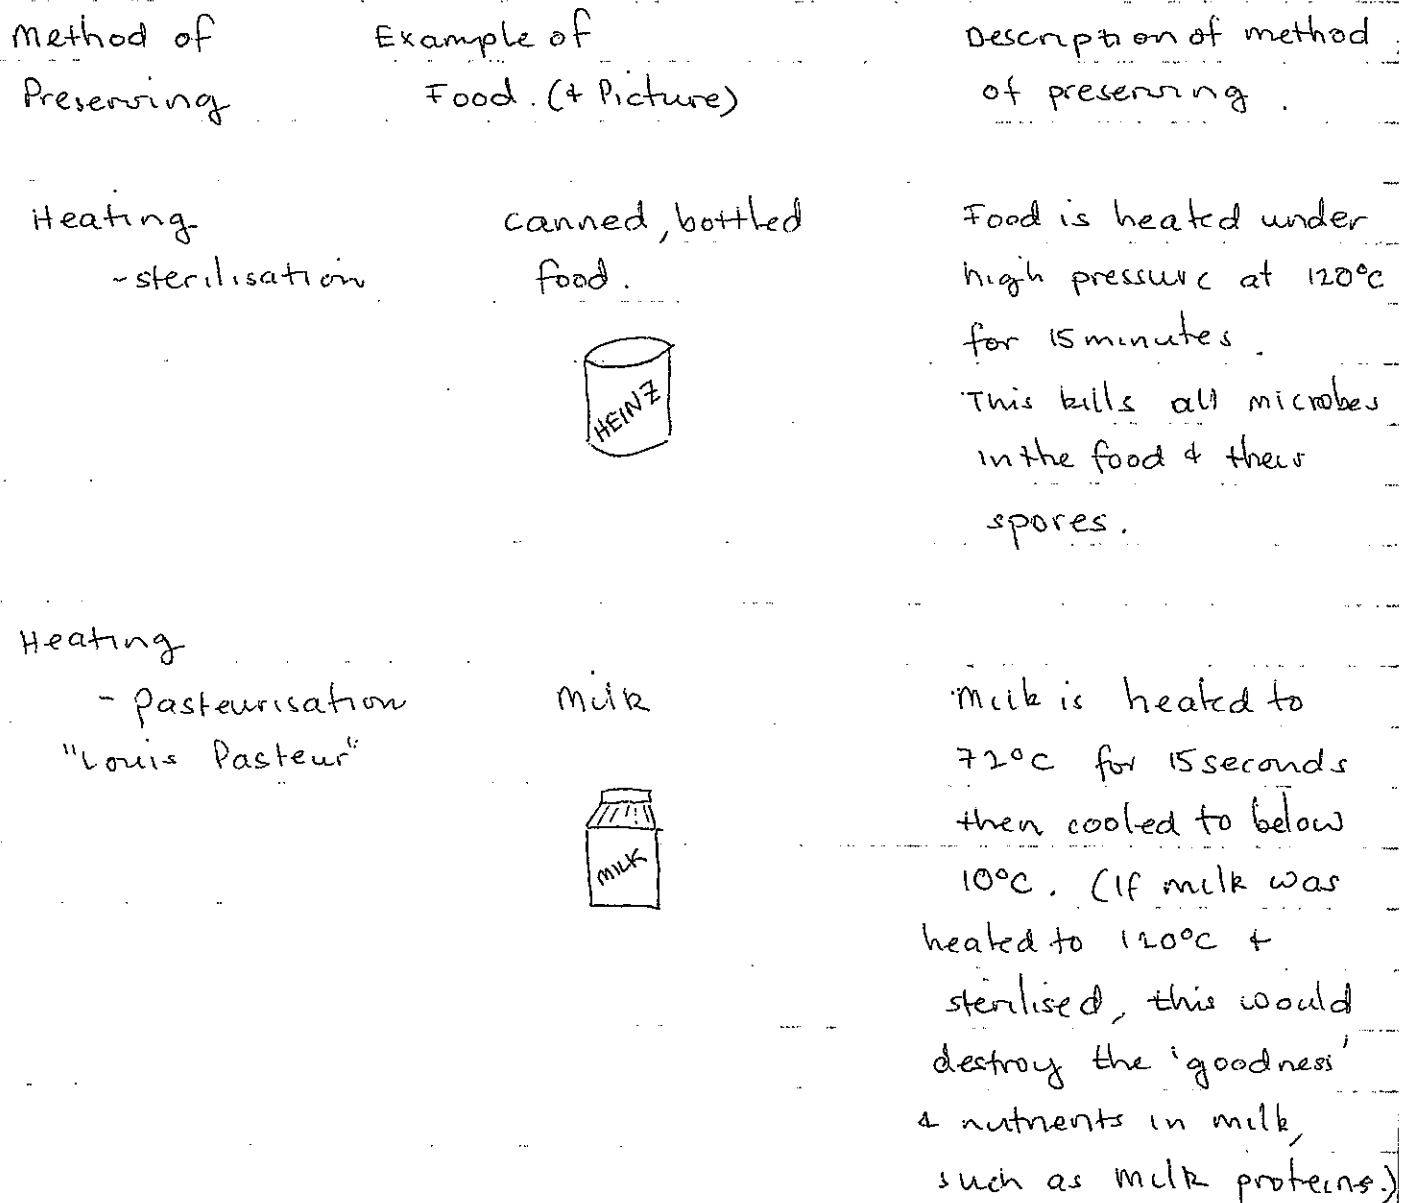 Method of Preserving
Example of Food. (& Picture)
Description of method of preserving.
Heating
- sterilisation
canned, bottled
food.
HEINZ
Food is heated under
high pressure at 120°C
for 15 minutes.
This kills all microbes
in the food & their
spores.
Heating
- Pasteurisation
"Louis Pasteur"
Milk
MILK
Milk is heated to
72°C for 15 seconds
then cooled to below
10°C. (If milk was
heated to 120°C &
sterilised, this would
destroy the 'goodness'
& nutrients in milk,
such as milk proteins.)